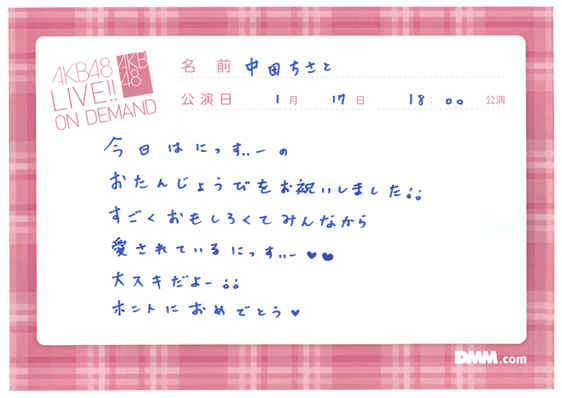 AKB48
LIVE!!
ON DEMAND
AKB
48
名 前 中田ちさと
公演日 1月 17日 18:00 公演
今日はにっすぃーの
おたんじょうびをお祝いしました!!
すごくおもしろくてみんなから
愛されているにっすぃー♥♥
大スキだよー!!
ホントにおめでとう♥
DMM.com